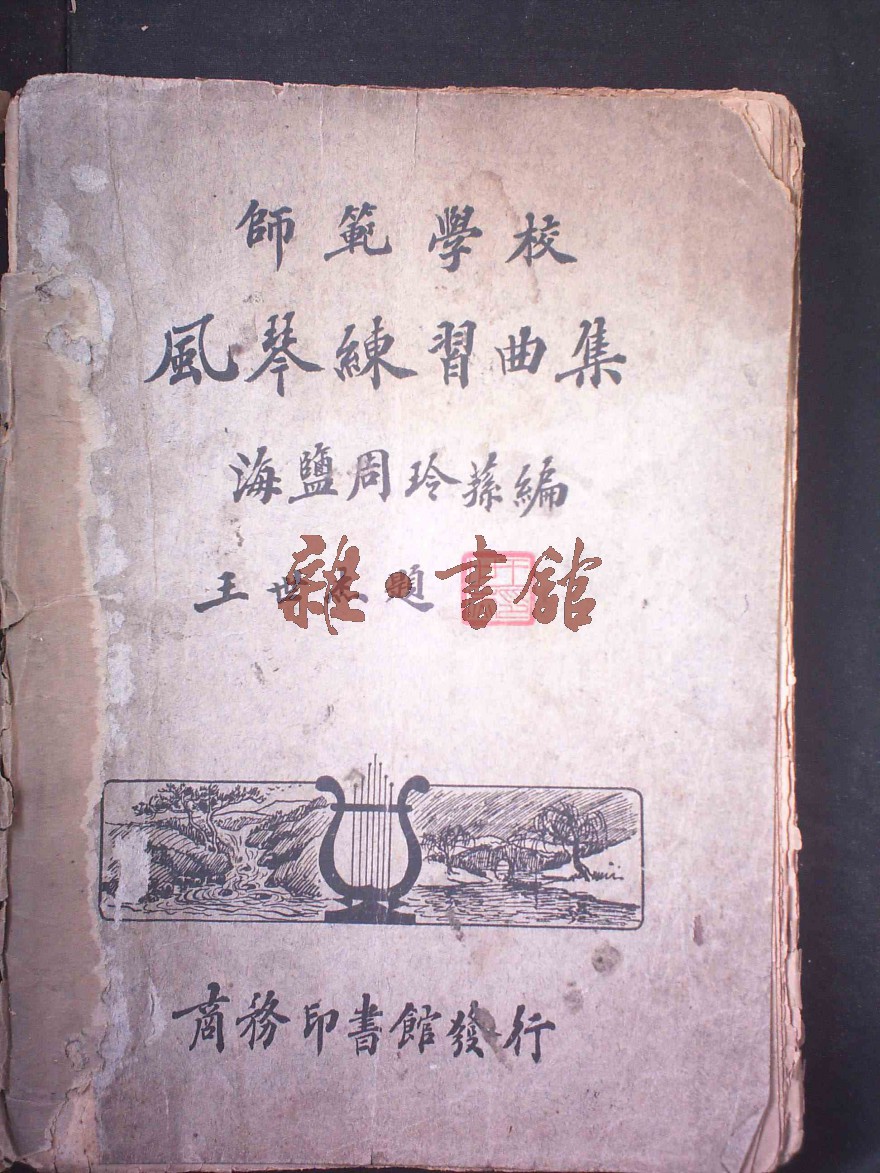 師範學校
風琴練習曲集
海鹽周玲蓀編
王世 題
雜·書館
商務印書館發行